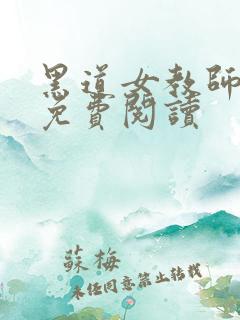 黑道女教師
免費閱讀
蘇梅
未經同意禁止轉載